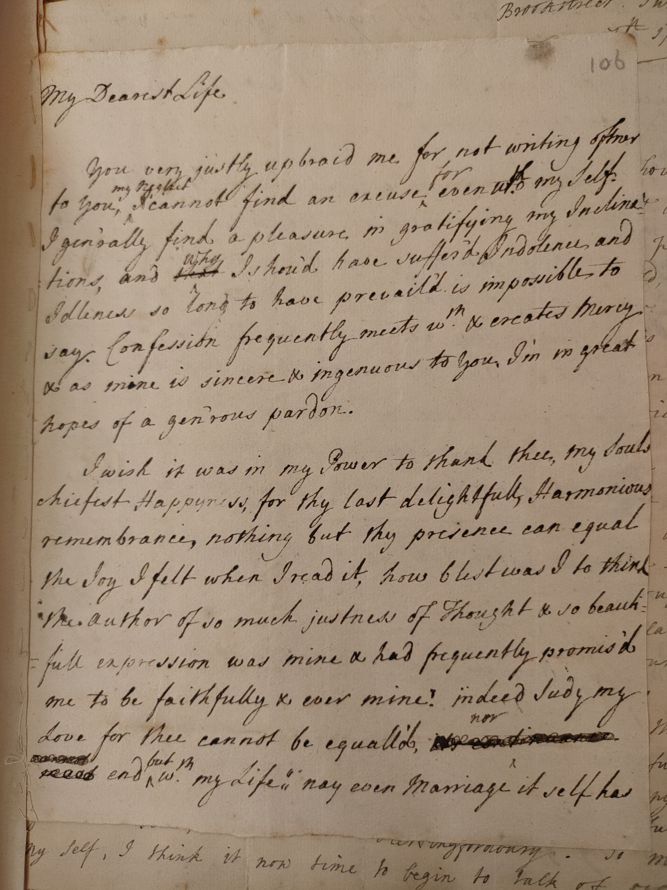 Brookstreet
106
My Dearest Life
You very justly upbraid me for not writing oftner
my Neglect for
to You, I cannot find an excuse even wth my Self.
I gen'rally find a pleasure in gratifying my Inclina-
why
tions, and that I shou'd have suffer'd Indolence and
Idleness so long to have prevail'd is impossible to
say. Confession frequently meets wth & creates Mercy
& as mine is sincere & ingenuous to You, I'm in great
hopes of a gen'rous pardon.
I wish it was in my Power to thank thee, my Souls
chiefest Happyness, for thy last delightfull, Harmonious
remembrance, nothing but thy presence can equal
the Joy I felt when I read it, how blest was I to think
the author of so much justness of Thought & so beauti-
full expression was mine & had frequently promis'd
me to be faithfully & ever mine! indeed Judy my
Love for thee cannot be equall'd,
nor
but
end wth my Life: nay even Marriage it self has
my self, I think it now time to begin to talk of